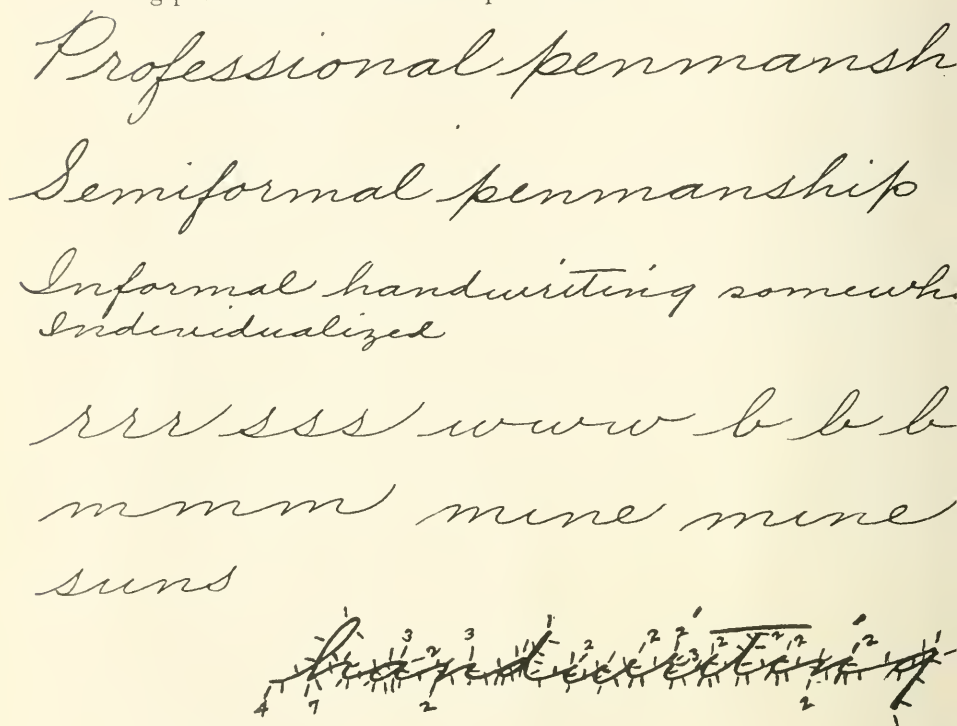 Professional penmansh
Semiformal penmanship
Informal handwriting somewh
Individualized
rrr sss www b b b
mmm mine mine
suns
1 3 2 3 1 2 2 2 2 2 2 2
handwriting
3
4 7 2 2